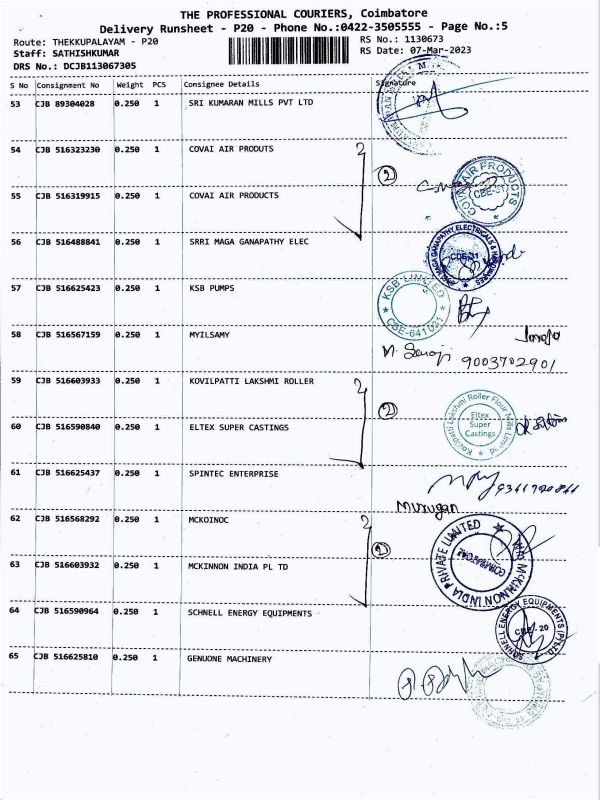 THE PROFESSIONAL COURIERS, Coimbatore
Delivery Runsheet - P20 - Phone No.:0422-3505555 - Page No.:5
Route: THEKKUPALAYAM - P20 RS No.: 1130673
Staff: SATHISHKUMAR RS Date: 07-Mar-2023
DRS No.: DCJB113067305
S No Consignment No Weight PCS Consignee Details Signature
53 CJB 89304028 0.250 1 SRI KUMARAN MILLS PVT LTD
54 CJB 516323230 0.250 1 COVAI AIR PRODUTS
2
COVAI AIR PRODUCTS
CBE-31
55 CJB 516319915 0.250 1 COVAI AIR PRODUCTS
56 CJB 516488841 0.250 1 SRRI MAGA GANAPATHY ELEC
SRRI MAGA GANAPATHY ELECTRICALS & HARDWARES
CBE-31
57 CJB 516625423 0.250 1 KSB PUMPS
KSB LIMITED
CBE-641 031
58 CJB 516567159 1 MYILSAMY
0.250
9003702901
59 CJB 516603933 0.250 1 KOVILPATTI LAKSHMI ROLLER
2
Kovilpatti Lakshmi Roller Flour Mills Limited
Eltex
Super
Castings
60 CJB 516590840 0.250 1 ELTEX SUPER CASTINGS
61 CJB 516625437 0.250 1 SPINTEC ENTERPRISE
Murugan
62 CJB 516568292 0.250 1 MCKOINOC
2
MCKINNON INDIA PRIVATE LIMITED
COIMBATORE
63 CJB 516603932 0.250 1 MCKINNON INDIA PL TD
64 CJB 516590964 0.250 1 SCHNELL ENERGY EQUIPMENTS
SCHNELL ENERGY EQUIPMENTS (P) LTD
CBE - 20
65 CJB 516625810 0.250 1 GENUONE MACHINERY